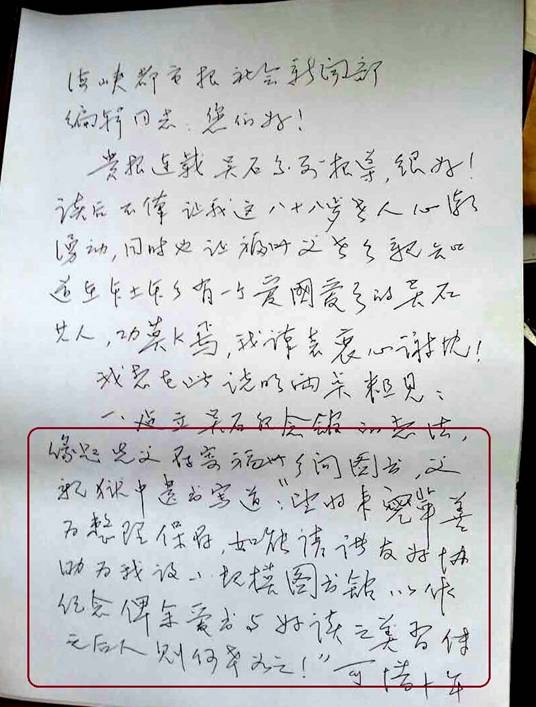 海峡都市报社会新闻部
编辑同志：您们好！
贵报连载吴石系列报导，很好！
读后不仅让我这八十八岁老人心潮
涌动，同时也让福州父老乡亲知
道在本土本乡有一个爱国爱乡的吴石
其人，功莫大焉，我谨表衷心谢忱！
我想在此说明两条粗见：
一、建立吴石纪念馆的想法，
缘起先父存寄福州乡间图书，父
亲狱中遗书写道：“望将来儿辈善
为整理保存，如能请诸友好协
助为我设小规模图书馆以作
纪念俾余爱书与好读之美习传
之后人则何幸如之！”可惜十年